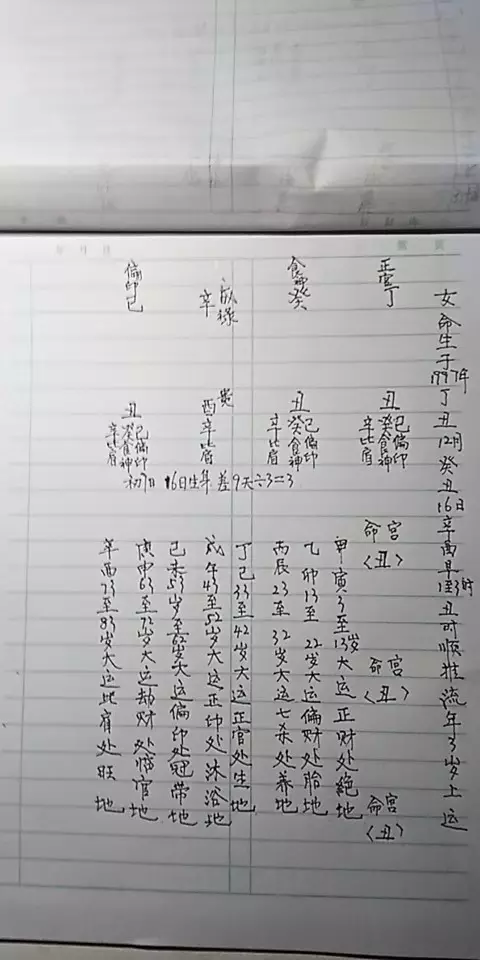 女命生于1997年丁丑12月癸丑16日辛酉早1至3时丑时顺推流年3岁上运
正官丁
丑
己偏印
癸食神
辛比肩
命宫
〈丑〉
命宫
〈丑〉
命宫
〈丑〉
食神癸
丑
己偏印
癸食神
辛比肩
辛
酉
辛比肩
偏印己
丑
己偏印
癸食神
辛比肩
初7日 16日生年差9天÷3=3
甲寅3至13岁大运正财处絕地
乙卯13至22岁大运偏财处胎地
丙辰23至32岁大运七杀处养地
丁巳33至42岁大运正官处生地
戊午43至52岁大运正印处沐浴地
己未53岁至62岁大运偏印处冠带地
庚申63至72岁大运劫财处临官地
辛酉73至83岁大运比肩处旺地